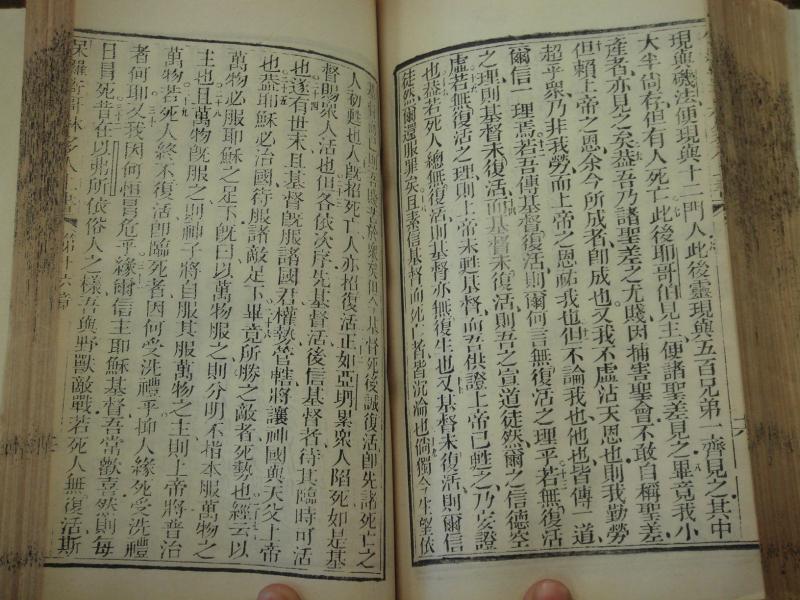 現與磯法便現與十二門人此後靈現與五百兄弟一齊見之其中
大半尚存但有人死亡此後耶哥伯見主便諸聖差見之畢竟我小
產者亦見之矣蓋吾乃諸聖差之無賤因捕害聖會不敢自稱聖差
但賴上帝之恩余今所成者卽成也又我不虛沾天恩也則我勤勞
超乎衆乃非我勞而上帝之恩祐我也但不論我也他也皆傳一道
爾信一理焉若吾傳基督復活則爾何言無復活之理乎若無復活
之理則基督未復活而基督未復活則吾之宣道徒然爾之信德空
虛若無復活之理則上帝未甦基督而吾供證上帝已甦之乃妄證
也蓋若死人總無復活則基督亦無復生也又基督未復活則爾信
徒然爾還服罪矣且素信基督而死亡者皆沉淪也倘獨今生望依
人初甦也人旣招死亡人亦招復活正如亞坍累衆人陷死如是基
督賜衆人活也但各依次序先基督活後信基督者待其臨時可活
也遂有世末且基督旣服諸國君權勢管轄將讓神國與天父上帝
也蓋耶穌必治國待服諸敵足下畢竟所勝之敵者死勢也經云以
萬物必服耶穌之足下旣曰以萬物服之則分明不指本服萬物之
主也且萬物旣服之則神子將自服其服萬物之主則上帝將普治
萬物若死人終不復活卽臨死者因何受洗禮乎抑人緣死受洗禮
者何耶又我因何恒冒危乎緣爾信主耶穌基督吾當歡喜然則每
日冒死昔在以弗所依俗人之樣吾與野獸敵戰若死人無復活斯